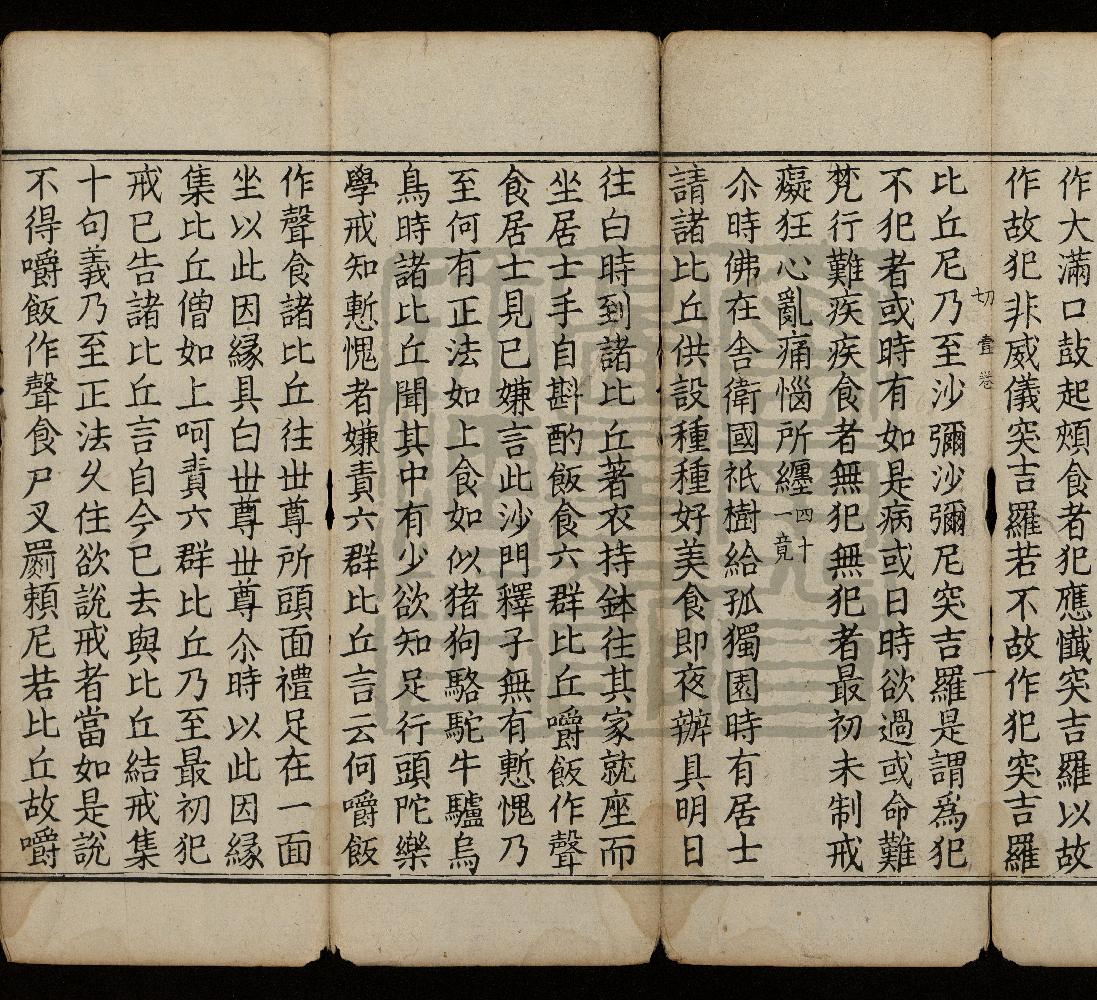 作大滿口鼓起頰食者犯應懺突吉羅以故
作故犯非威儀突吉羅若不故作犯突吉羅
切 壹卷 一
比丘尼乃至沙彌沙彌尼突吉羅是謂為犯
不犯者或時有如是病或日時欲過或命難
梵行難疾疾食者無犯無犯者最初未制戒
癡狂心亂痛惱所纏四十一竟
尒時佛在舍衛國祇樹給孤獨園時有居士
請諸比丘供設種種好美食即夜辦具明日
往白時到諸比丘著衣持鉢往其家就座而
坐居士手自斟酌飯食六群比丘嚼飯作聲
食居士見已嫌言此沙門釋子無有慙愧乃
至何有正法如上食如似猪狗駱駝牛驢烏
鳥時諸比丘聞其中有少欲知足行頭陀樂
學戒知慙愧者嫌責六群比丘言云何嚼飯
作聲食諸比丘往世尊所頭面禮足在一面
坐以此因緣具白世尊世尊尒時以此因緣
集比丘僧如上呵責六群比丘乃至最初犯
戒已告諸比丘言自今已去與比丘結戒集
十句義乃至正法久住欲說戒者當如是說
不得嚼飯作聲食尸叉罽賴尼若比丘故嚼